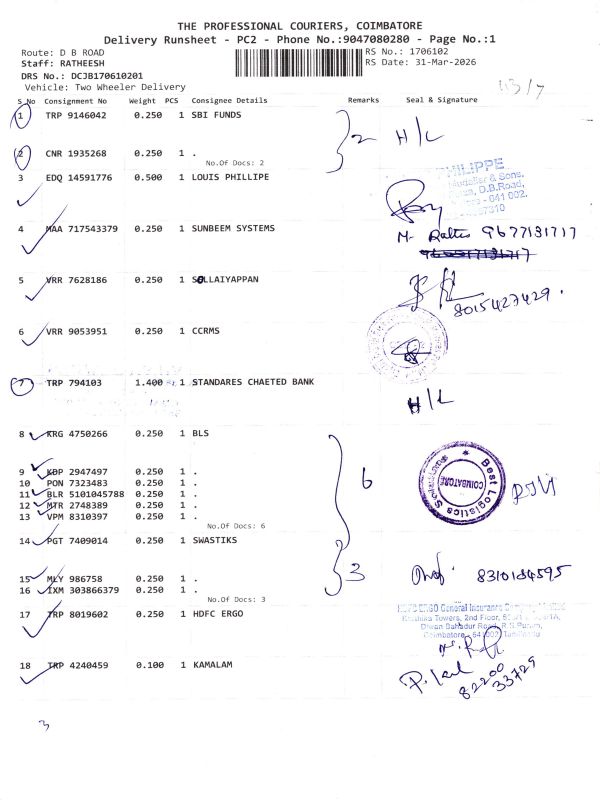 THE PROFESSIONAL COURIERS, COIMBATORE
Delivery Runsheet - PC2 - Phone No.:9047080280 - Page No.:1
Route: D B ROAD
RS No.: 1706102
Staff: RATHEESH
RS Date: 31-Mar-2026
DRS No.: DCJB170610201
Vehicle: Two Wheeler Delivery
113/7
S No Consignment No Weight PCS Consignee Details Remarks Seal & Signature
1 TRP 9146042 0.250 1 SBI FUNDS
2 H/L
2 CNR 1935268 0.250 1 .
No.Of Docs: 2
3 EDQ 14591776 0.500 1 LOUIS PHILLIPE
PHILIPPE
& Sons.
D.B.Road,
641 002.
4 MAA 717543379 0.250 1 SUNBEEM SYSTEMS
9677131717
5 VRR 7628186 0.250 1 SELLAIYAPPAN
8015427429.
6 VRR 9053951 0.250 1 CCRMS
7 TRP 794103 1.400 1 STANDARES CHAETED BANK
H/L
8 KRG 4750266 0.250 1 BLS
9 KDP 2947497 0.250 1 .
6
Best Logistics Solutions
COIMBATORE
10 PON 7323483 0.250 1 .
11 BLR 5101045788 0.250 1 .
12 MTR 2748389 0.250 1 .
13 VPM 8310397 0.250 1 .
No.Of Docs: 6
14 PGT 7409014 0.250 1 SWASTIKS
3
8310184595
15 MLY 986758 0.250 1 .
16 IXM 303866379 0.250 1 .
No.Of Docs: 3
17 TRP 8019602 0.250 1 HDFC ERGO
HDFC ERGO General Insurance Company Limited
Towers, 2nd Floor,
Diwan Bahadur Road, R.S.Puram,
Coimbatore - 641002 Tamilnadu
18 TRP 4240459 0.100 1 KAMALAM
82200
33729
3